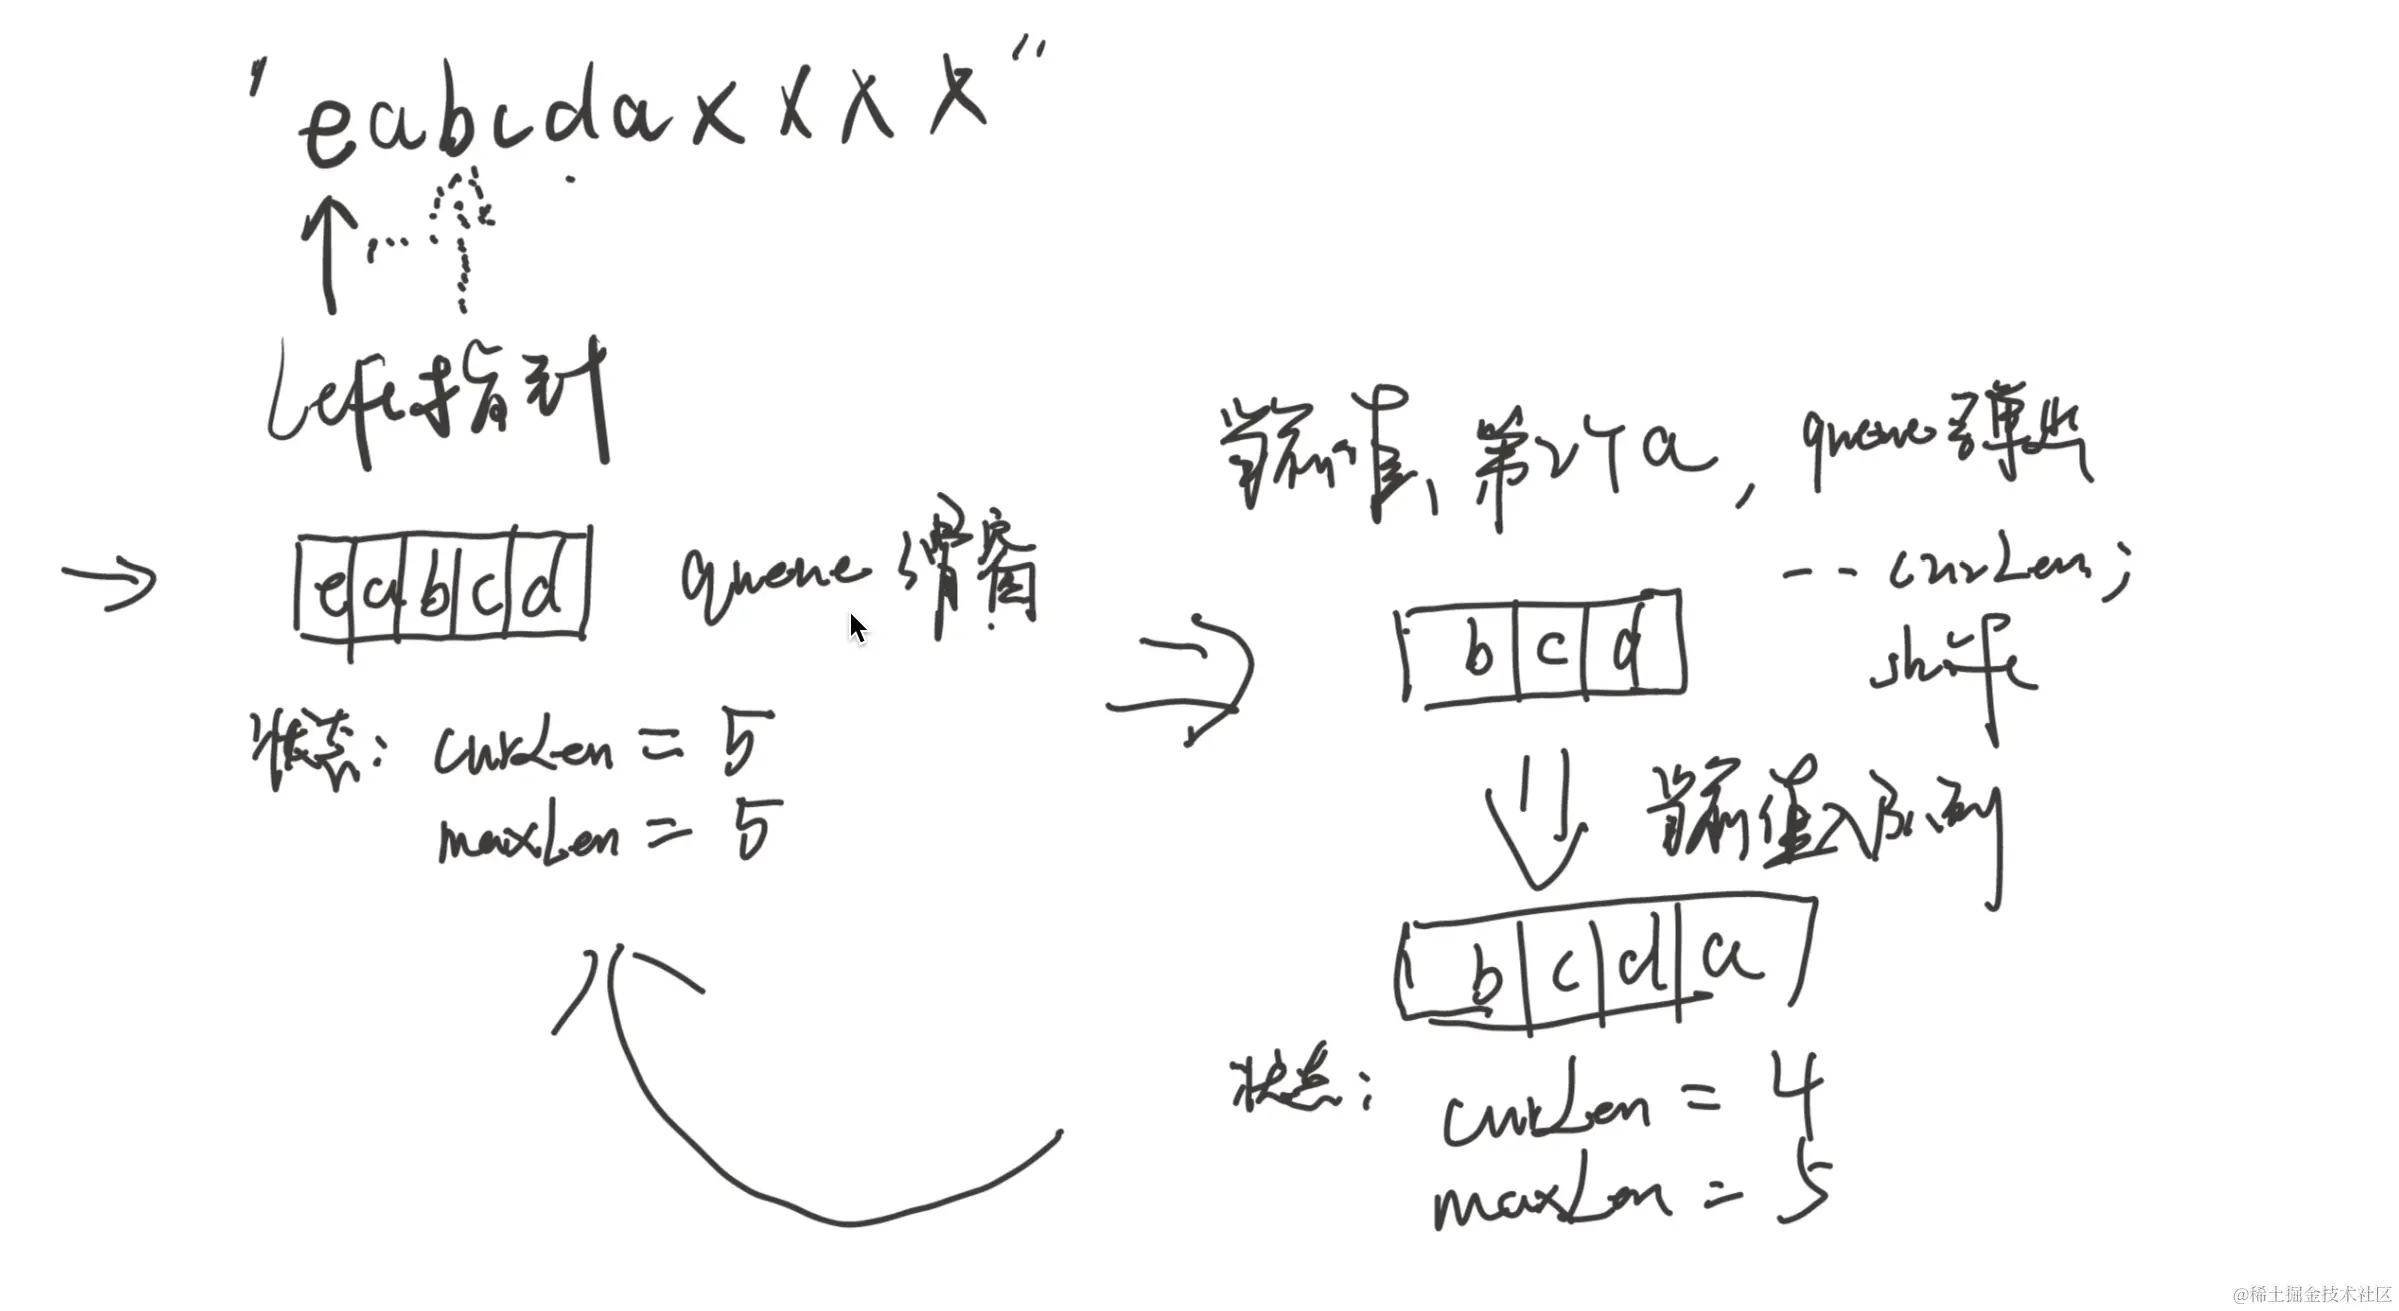 "eabcdaxxxx"
Left指针
e a b c d
queue 滑窗
状态: curLen = 5
maxLen = 5
当前值, 第2个a, queue弹出
--curLen;
shift
b c d
当前值入队列
b c d a
状态: curLen = 4
maxLen = 5
@稀土掘金技术社区